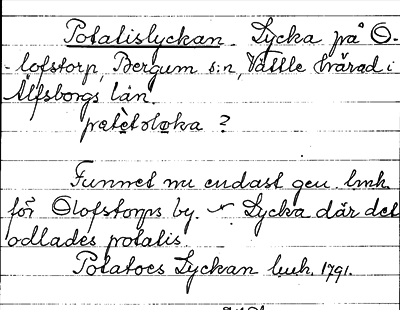 Potatislyckan. Lycka på O-
-lofstorp, Bergum s:n, Vättle härad i
Älfsborgs län.
patètsløka ?
Funnet nu endast gen. lmk.
för Olofstorps by. Lycka där det
odlades potatis.
Potatoes Lyckan lmk. 1791.